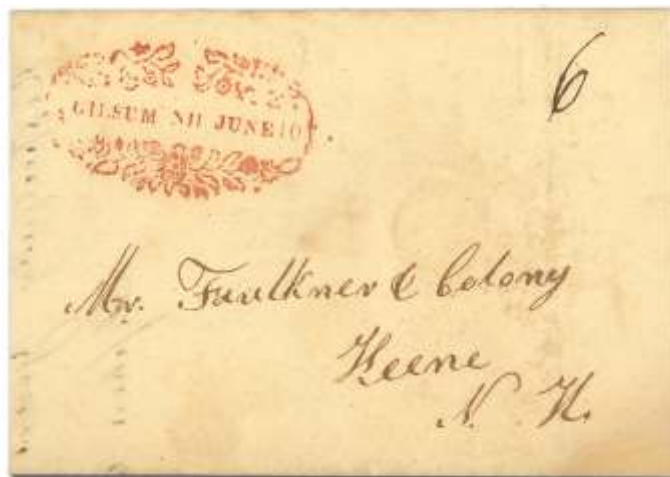 GILSUM NH JUNE 10
6
Mr. Faulkner & Colony
Keene
N. H.